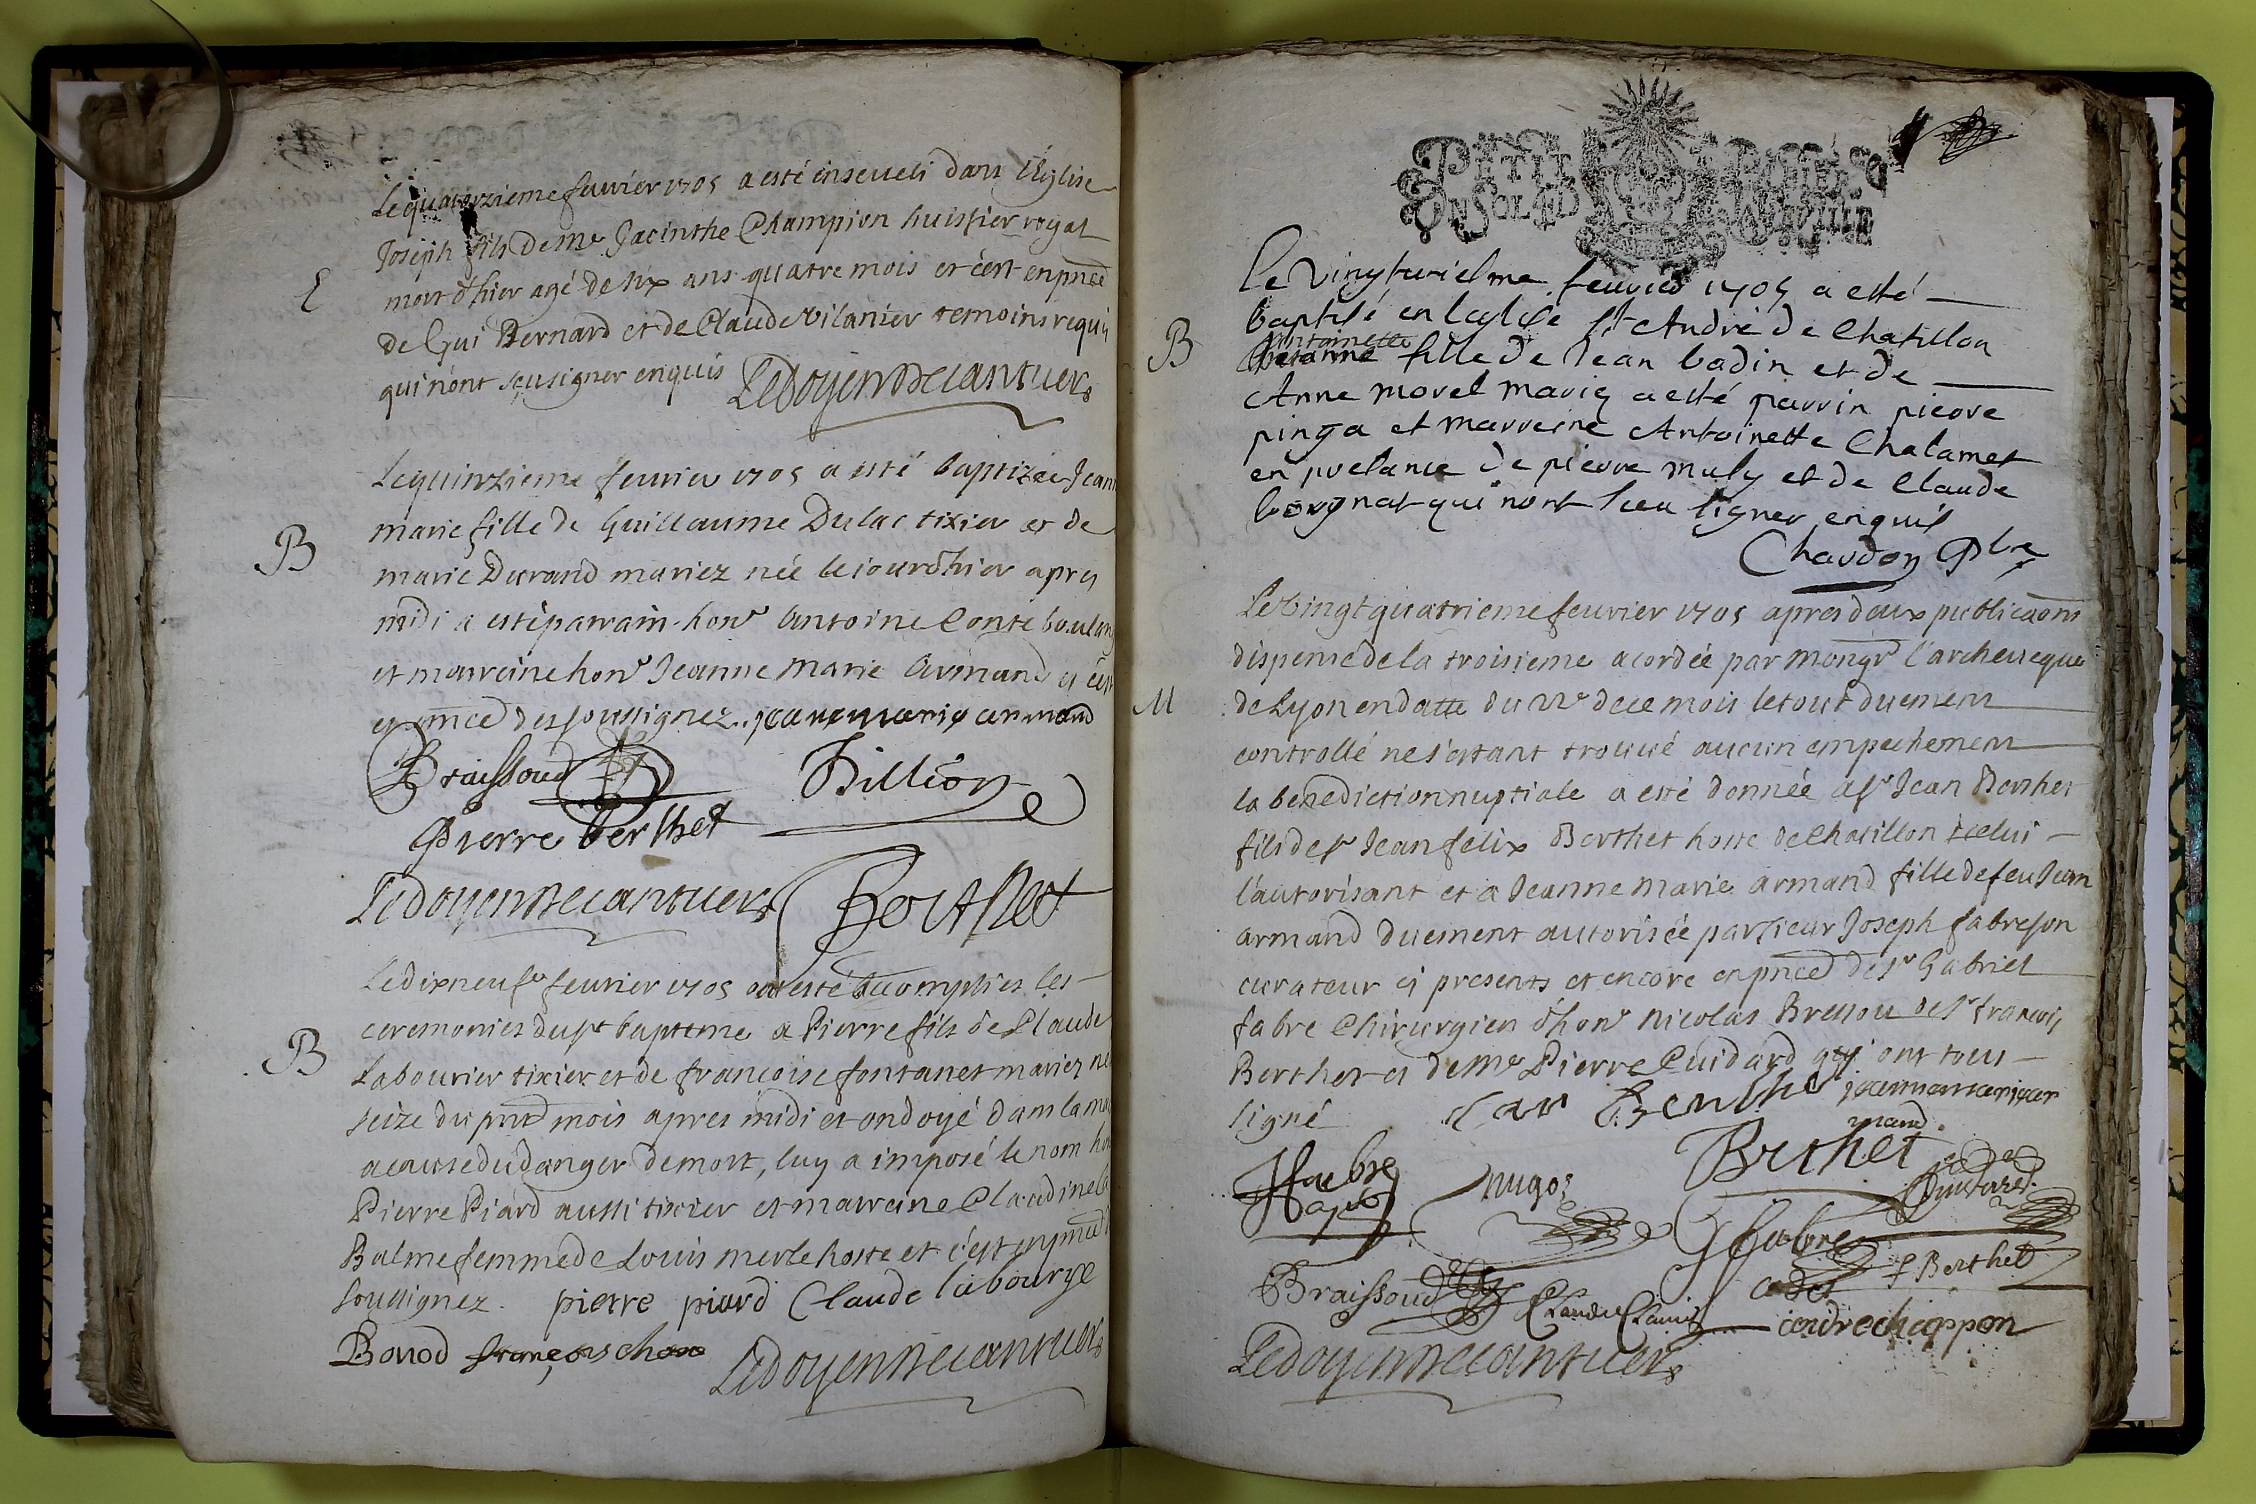 Le quatorzieme feuvrier 1705 a esté enseueli dans l'Eglise
Joseph fils de Me Jacinthe Champion huissier royal
E
mort d'hier agé de six ans quatre mois et c'est en pnce
de Gui Bernard et de Claude Vilanier temoins requis
qui n'ont sçu signer enquis Ledoyen
Le quinzieme feuvrier 1705 a esté baptizée Jeanne
marie fille de Guillaume Dulac tixier et de
B
marie Durand mariez née le jour d'hier apres
midi a esté parrain hon.e Antoine Conte boulang
et marreine hon.e Jeanne Marie Armand et c'est
en pnce des soussignez. jeane marie armand
Braissoud Billion
Pierre berthet
Ledoyen Berthet
Le dixneufe feuvrier 1705 ont esté accomplies les
ceremonies du st bapteme a Pierre fils de Claude
B
Labourier tixier et de françoise fontanet mariez né
seize du pnt mois apres midi et ondoyé dans la
a cause du danger de mort, luy a imposé le nom
Pierre Piard aussi tixier et marreine Claudine
Balme femme de Louis Merle hoste et c'est en pnce
soussignez. pierre piard Claude labourye
Bonod françois Ledoyen
PETIT PAPIER
UN SOL LA
Le Vingtuniesme feuvrier 1705 a esté
baptisé en leglise St André de Chatillon
B
Antoinette
fille de Jean badin et de
Anne morel mariez a esté parrin pierre
pinga et marreine Antoinette Chalamet
en presance de pierre muly et de Claude
borgnat qui n'ont sceu signer enquis
Chardon Pbre
Le Vingt quatrieme feuvrier 1705 apres deux publicaons
dispense de la troisieme acordée par Mongr l'archeueque
M
de Lyon en datte du 22e de ce mois le tout duement
controllé ne s'estant trouué aucun empechement
la benediction nuptiale a esté donnée a sr Jean Berthet
fils de sr Jean felix Berthet hoste de Chatillon icelui
l'autorisant et a Jeanne Marie armand fille de feu Jean
armand duement autorisée par sieur Joseph fabre son
curateur ci presents et encore en pnce de sr Gabriel
fabre Chirurgien d'hon.e Nicolas Bressou de sr françois
Berthet et de Me Pierre Cuidard qui ont tous
signé jeanne marie ar
mand
fabre nugoz Berthet
fabre
Braissoud Claude cadet f Berthet
andre chappon
Ledoyen